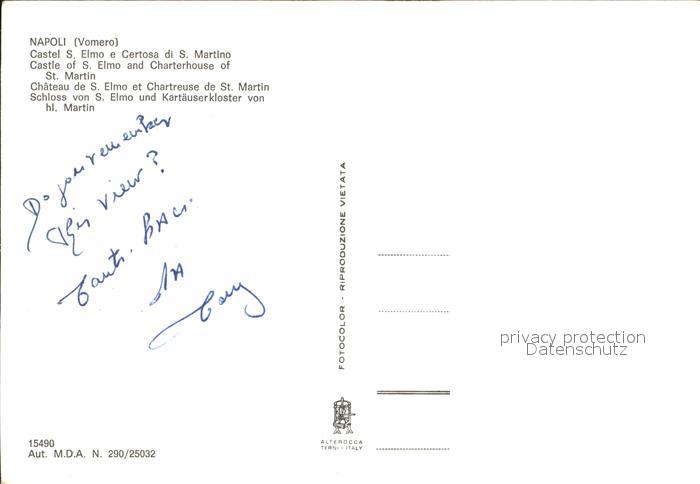 NAPOLI (Vomero)
Castel S. Elmo e Certosa di S. Martino
Castle of S. Elmo and Charterhouse of
St. Martin
Château de S. Elmo et Chartreuse de St. Martin
Schloss von S. Elmo und Kartäuserkloster von
hl. Martin
Do you remember
this view?
Tanti. BAci.
FOTOCOLOR - RIPRODUZIONE VIETATA
privacy protection
Datenschutz
ALTEROCCA
TERNI - ITALY
15490
Aut. M.D.A. N. 290/25032